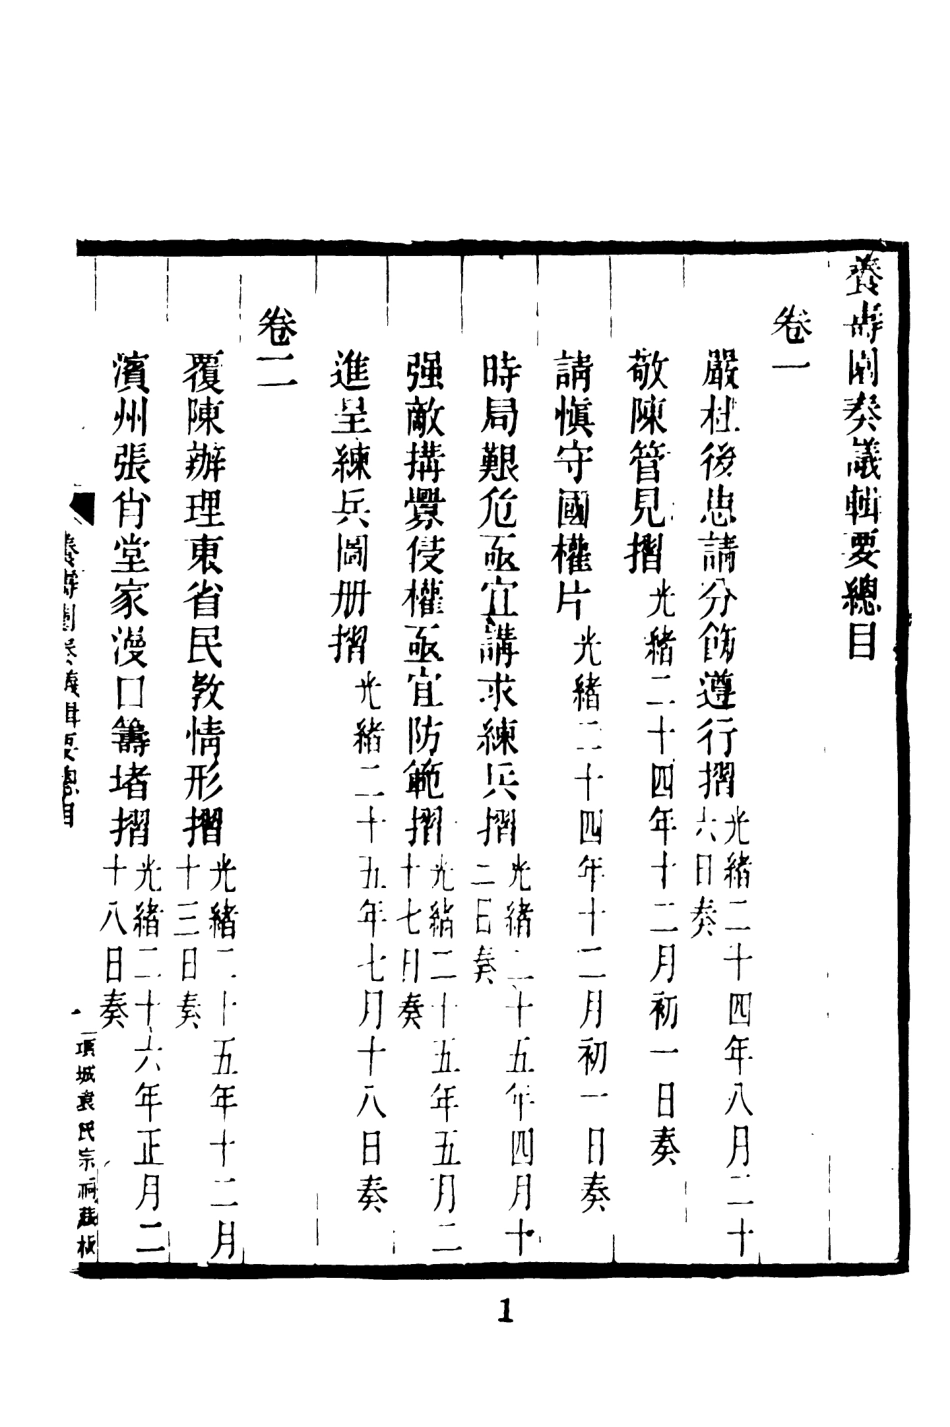 養壽園奏議輯要總目
卷一
嚴杜後患請分飭遵行摺光緒二十四年八月二十六日奏
敬陳管見摺光緒二十四年十二月初一日奏
請愼守國權片光緒二十四年十二月初一日奏
時局艱危亟宜講求練兵摺光緒二十五年四月十二日奏
强敵搆釁侵權亟宜防範摺光緒二十五年五月二十七日奏
進呈練兵圖册摺光緒二十五年七月十八日奏
卷二
覆陳辦理東省民教情形摺光緒二十五年十二月十三日奏
濱州張肖堂家漫口籌堵摺光緒二十六年正月二十八日奏
養壽園奏議輯要總目
一
項城袁氏宗祠藏板
1